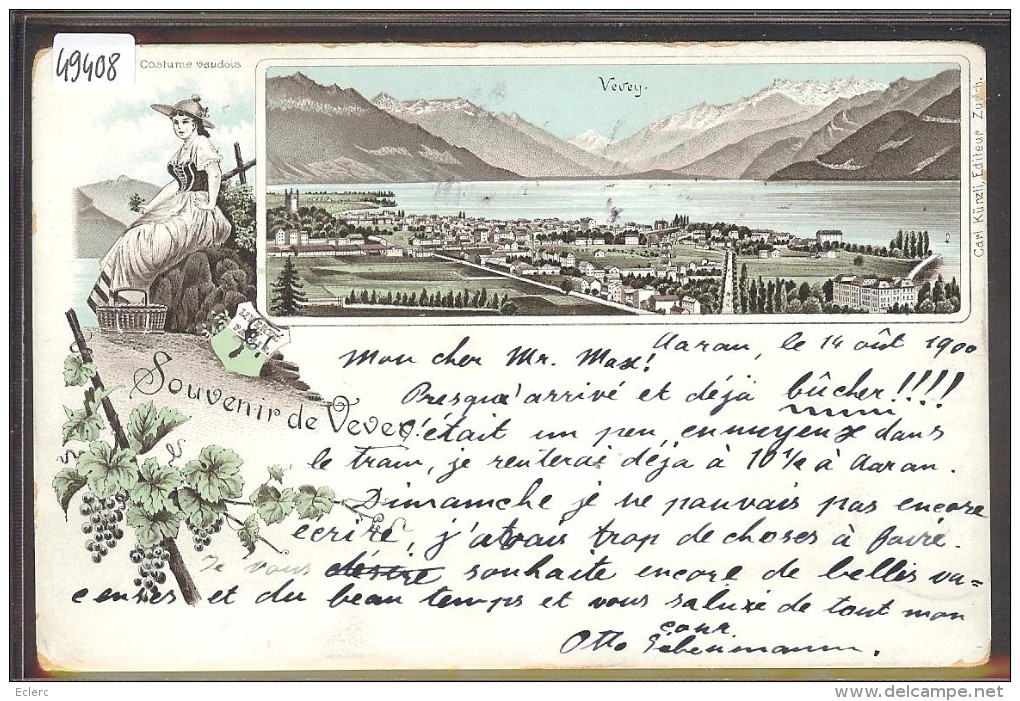 49408
Costume vaudois
Vevey.
Carl Künzli, Editeur Zurich.
LIBERTÉ
ET
PATRIE
Souvenir de Vevey
Aarau, le 14 oût 1900
Mon cher Mr. Max!
Presqu'arrivé et déjà bûcher!!!!
C'était un peu ennuyeux dans
le train, je renterai déja à 10 ½ à Aarau.
Dimanche je ne pauvais pas encore
écrire, j'avais trop de choses à faire.
Je vous souhaite encore de belles va-
cences et du beau temps et vous saluxe de tout mon
cour
Otto
Eclerc
www.delcampe.net